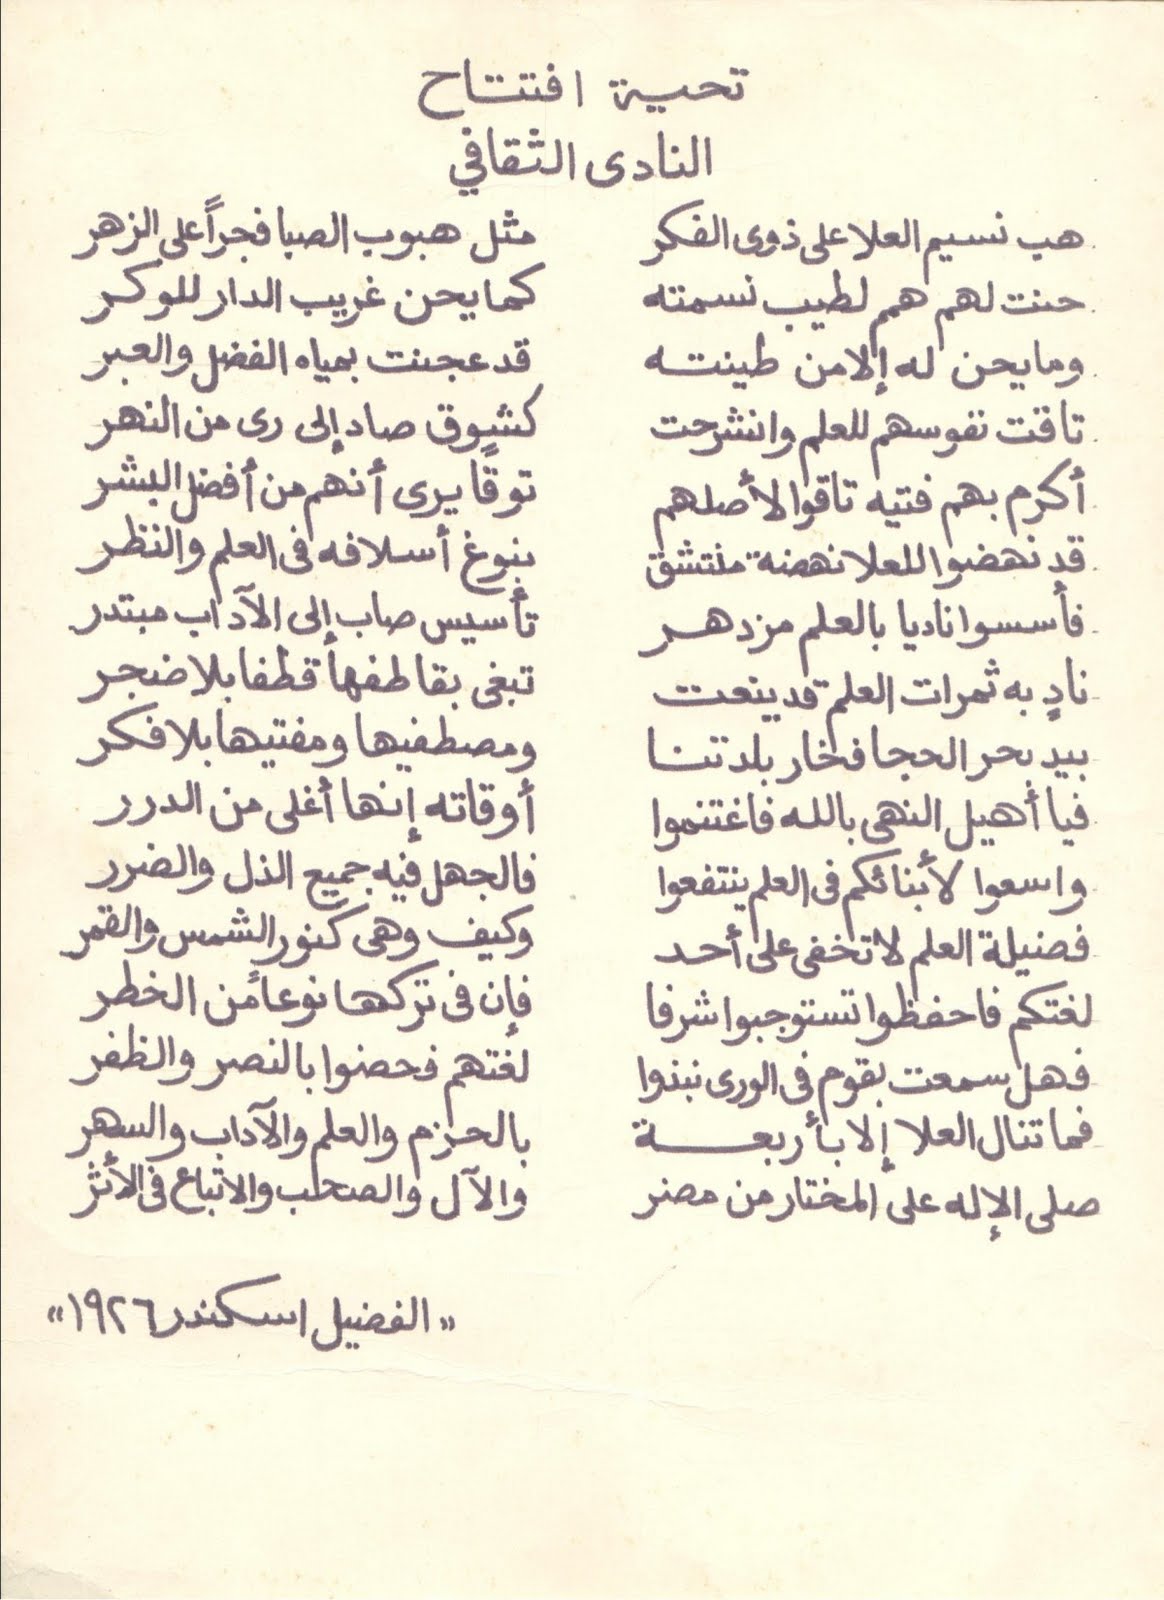 تحية افتتاح
النادى الثقافي
هب نسيم العلا على ذوى الفكر مثل هبوب الصبا فجراً على الزهر
حنت لهم همم لطيب نسمته كما يحن غريب الدار للوكر
وما يحن له إلا من طينته قد عجنت بمياه الفضل والعبر
تاقت نفوسهم للعلم وانشرحت كشوق صاد إلى رى من النهر
أكرم بهم فتيه تاقوا لأصلهم توقًا يرى أنهم من أفضل البشر
قد نهضوا للعلا نهضة منتشق بنوغ أسلافه فى العلم والنظر
فأسسوا ناديا بالعلم مزدهر تأسيس صاب إلى الآداب مبتدر
نادٍ به ثمرات العلم قد ينعت تبغى بقاطفها قطفا بلا ضجر
بيد بحر الحجا فخار بلدتنا ومصطفيها ومفتيها بلا فكر
فيا أهيل النهى بالله فاغتنموا أوقاته إنها أغلى من الدرر
واسعوا لأبنائكم فى العلم ينتفعوا فالجهل فيه جميع الذل والضرر
فضيلة العلم لا تخفى على أحد وكيف وهى كنور الشمس والقمر
لغتكم فاحفظوا تستوجبوا شرفا فإن فى تركها نوعاً من الخطر
فهل سمعت بقوم فى الورى نبذوا لغتهم فحضوا بالنصر والظفر
فما تنال العلا إلا بأربعة بالحزم والعلم والآداب والسهر
صلى الإله على المختار من مضر والآل والصحب والاتباع فى الأثر
« الفضيل اسكندر ١٩٢٦ »